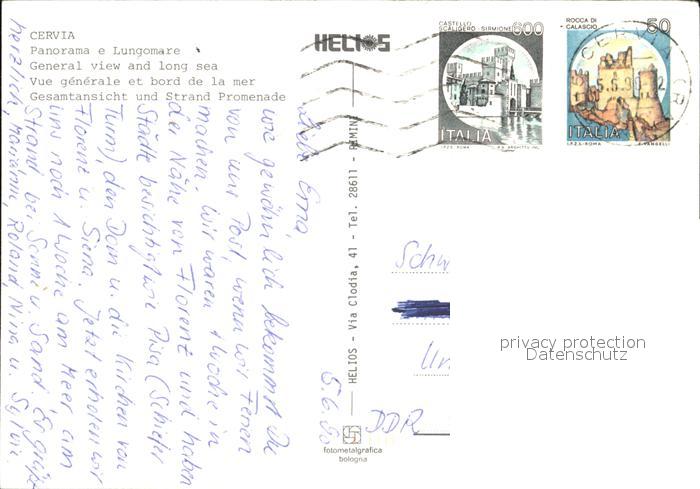 CERVIA
Panorama e Lungomare
General view and long sea
Vue générale et bord de la mer
Gesamtansicht und Strand Promenade
HELIOS
CASTELLO
SCALIGERO - SIRMIONE
600
ITALIA
I.P.Z.S. ROMA
ROCCA DI
CALASCIO
50
ITALIA
I.P.Z.S. - ROMA
CERVIA
Liebe Erna,
wie gewöhnlich bekommst Du
von uns Post, wenn wir Ferien
machen. Wir waren 1 Woche in
der Nähe von Florenz und haben
Städte besichtigt wie Pisa (Schiefer
Turm), den Dom u. die Kirchen von
Florenz u. Siena. Jetzt erholen wir
uns noch 1 Woche am Meer am
Strand bei Sonne u. Sand. Es grüßt
herzlich, Marianne, Roland, Nina u. Sylvia.
5.6.90
HELIOS - Via Clodia, 41 - Tel. 28611 - RIMINI
Schw
Un
DDR
privacy protection
Datenschutz
fotometalgrafica
bologna